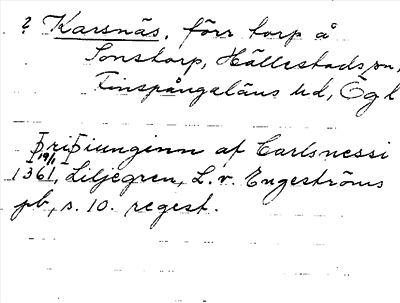 ? Karsnäs, förr torp å
Sonstorp, Hällestads sn,
Finspångaläns hd, Ögl
i Þripiunginn af Carlsnessi
19/1 1361, Liljegren, L. v. Engeströms
pb, s. 10. regest.